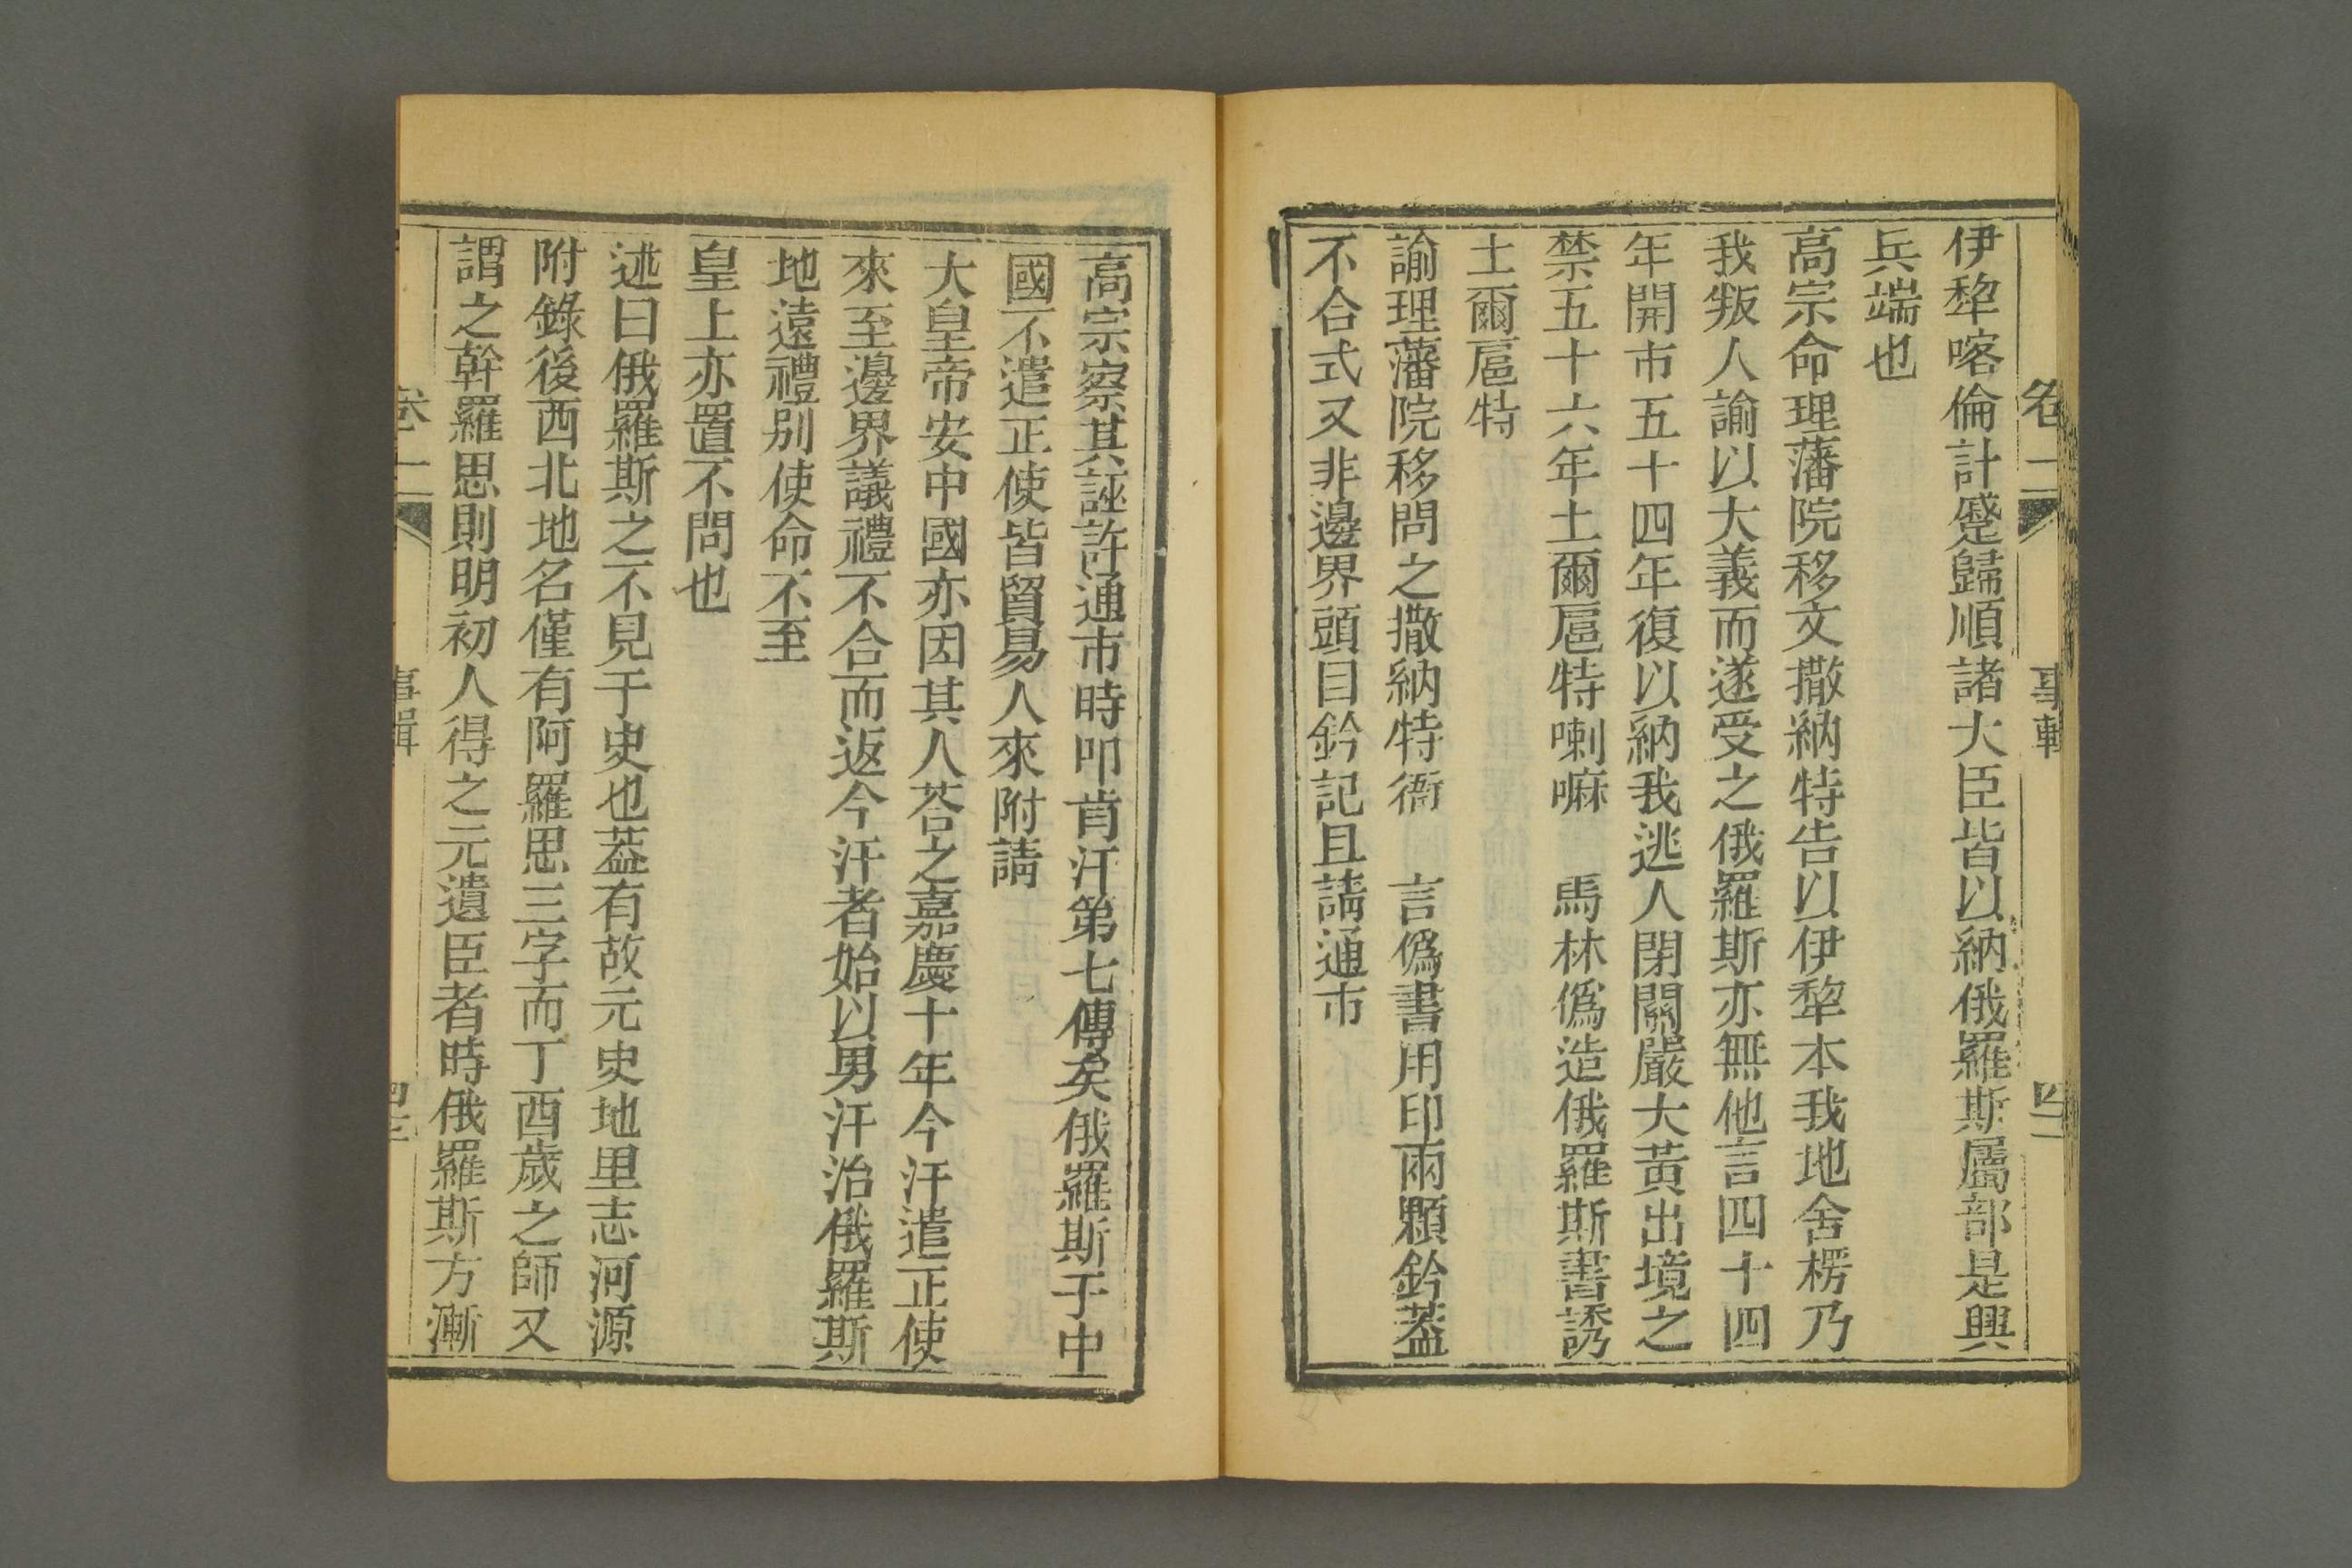 卷二 事輯
伊犂喀倫計蹙歸順諸大臣皆以納俄羅斯屬部是興
兵端也
高宗命理藩院移文撒納特告以伊犂本我地舍楞乃
我叛人諭以大義而遂受之俄羅斯亦無他言四十四
年開市五十四年復以納我逃人閉關嚴大黃出境之
禁五十六年土爾扈特喇嘛 馬林僞造俄羅斯書誘
土爾扈特
諭理藩院移問之撒納特衙 言僞書用印兩顆鈐蓋
不合式又非邊界頭目鈐記且請通市
高宗察其誣許通市時叩肯汗第七傳矣俄羅斯于中
國不遣正使皆貿易人來附請
大皇帝安中國亦因其人荅之嘉慶十年今汗遣正使
來至邊界議禮不合而返今汗者始以男汗治俄羅斯
地遠禮別使命不至
皇上亦置不問也
述曰俄羅斯之不見于史也葢有故元史地里志河源
附錄後西北地名僅有阿羅思三字而丁酉歲之師又
謂之幹羅思則明初人得之元遺臣者時俄羅斯方漸
卷二 事輯